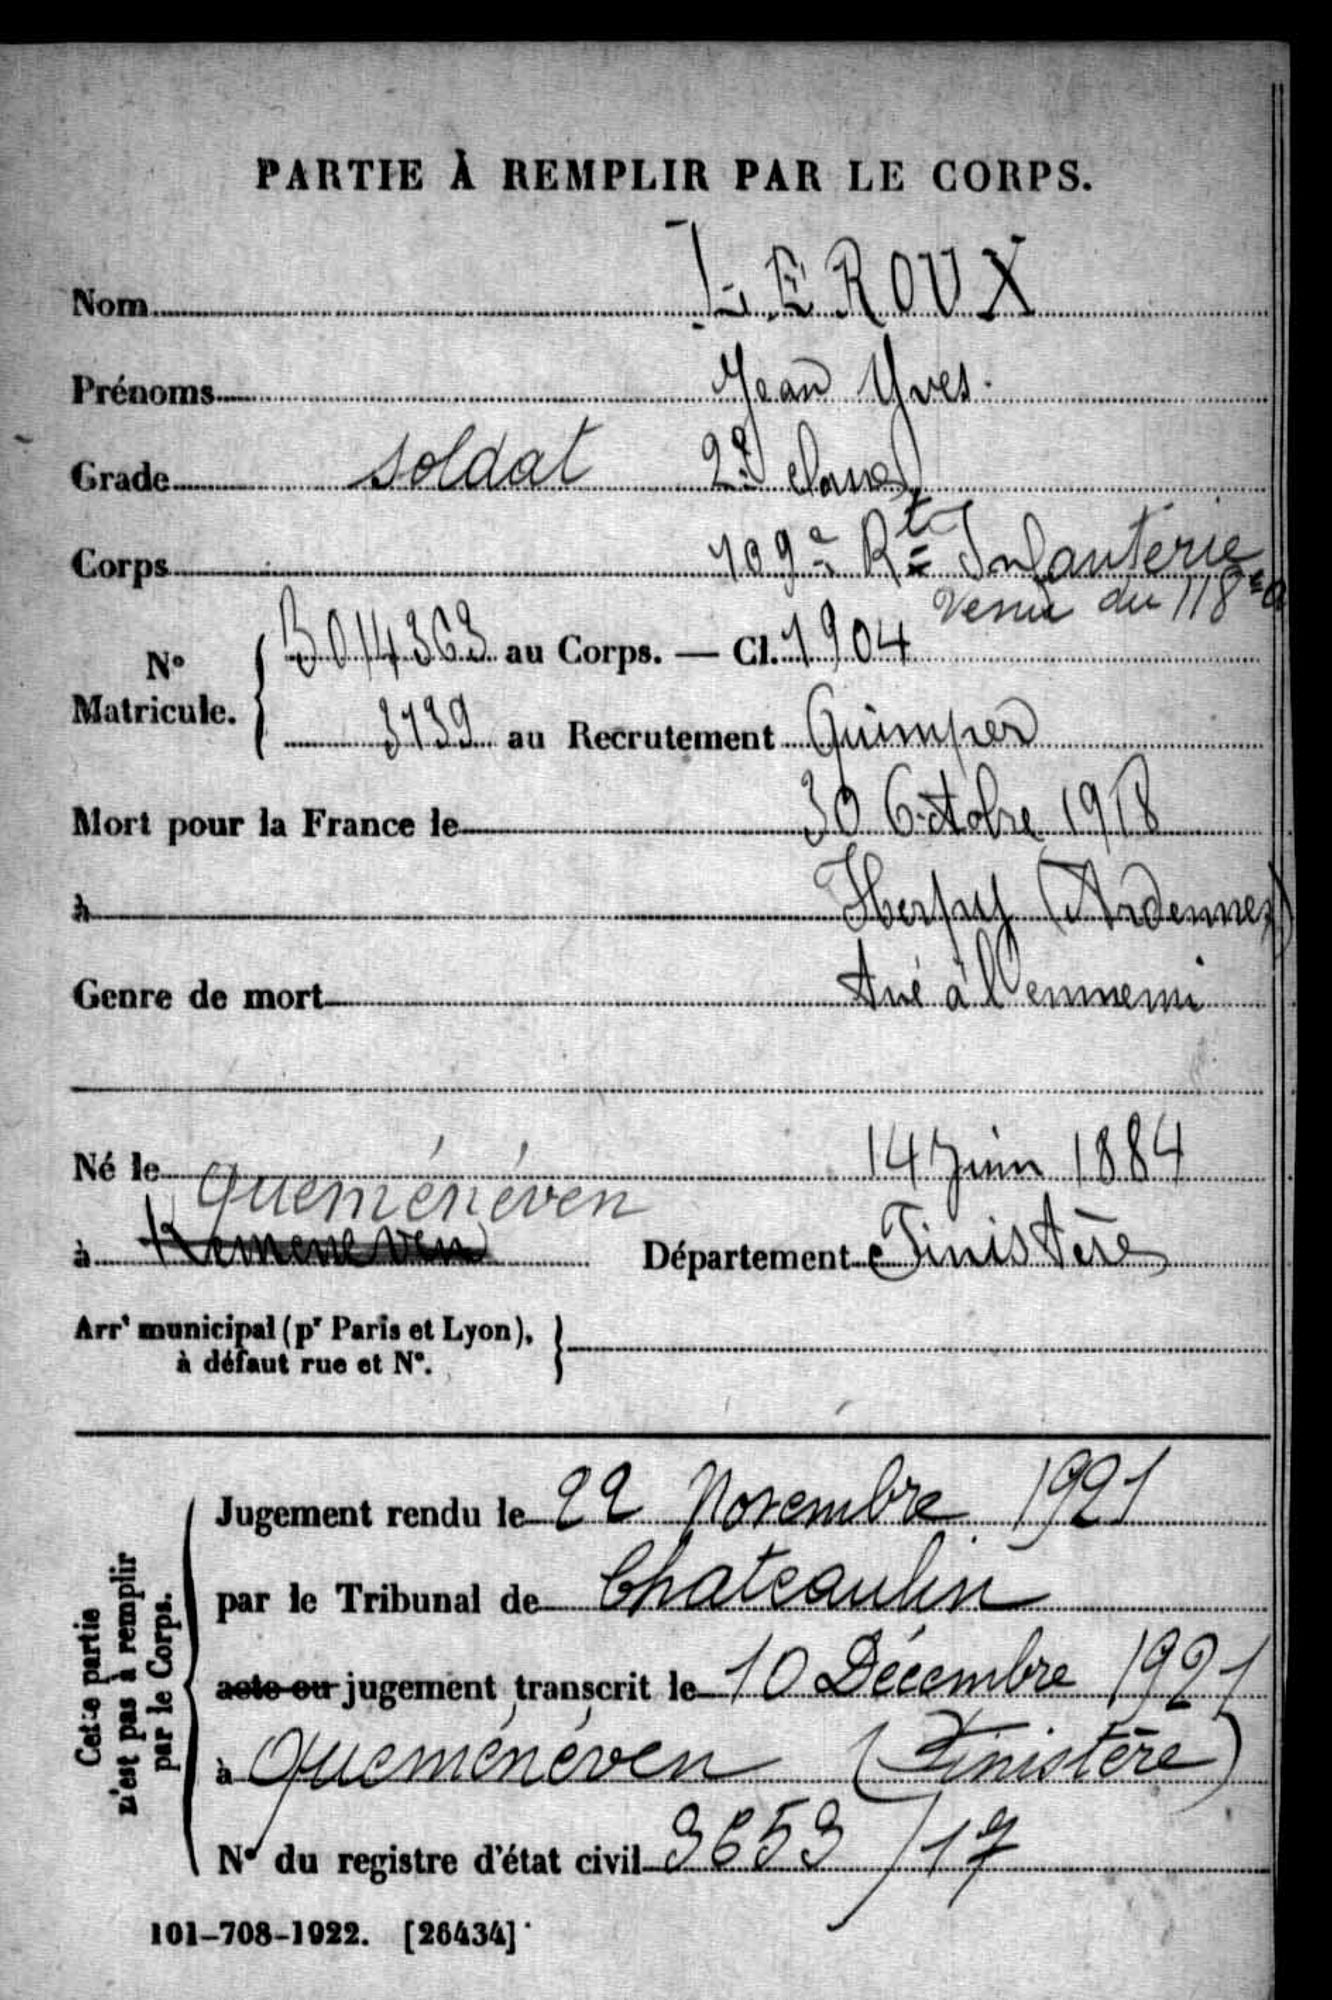 PARTIE À REMPLIR PAR LE CORPS.
Nom LE ROUX
Prénoms Jean Yves.
Grade soldat 2e classe
Corps 109e Rt Infanterie
venu du 118e
No Matricule. 3014363 au Corps. — Cl. 1904
3139 au Recrutement Quimper
Mort pour la France le 30 Octobre 1918
à Herpy (Ardennes)
Genre de mort tué à l'ennemi
Né le 14 Juin 1884
Queménéven
à Kemeneven Département Finistère
Arrt municipal (pr Paris et Lyon),
à défaut rue et No.
Cette partie
n'est pas à remplir
par le Corps.
Jugement rendu le 22 Novembre 1921
par le Tribunal de Chateaulin
acte ou jugement transcrit le 10 Décembre 1921
à Queménéven (Finistère)
No du registre d'état civil 3653/17
101-708-1922. [26434]